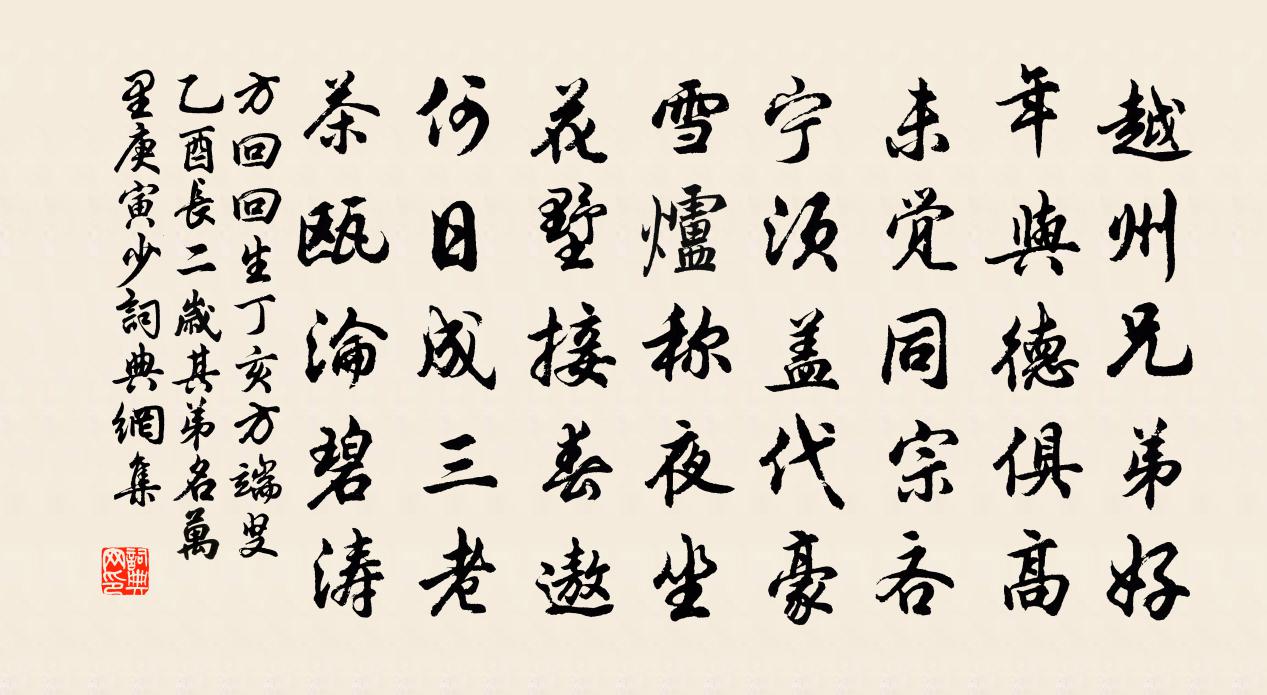 越州兄弟好
年與德俱高
未觉同宗吝
宁须盖代豪
雪爐称夜坐
花墅接春遨
何日成三老
茶瓯淪碧涛
方回回生丁亥方端叟
乙酉長二歳其弟名萬
里庚寅少詞典網集
詞典
网印